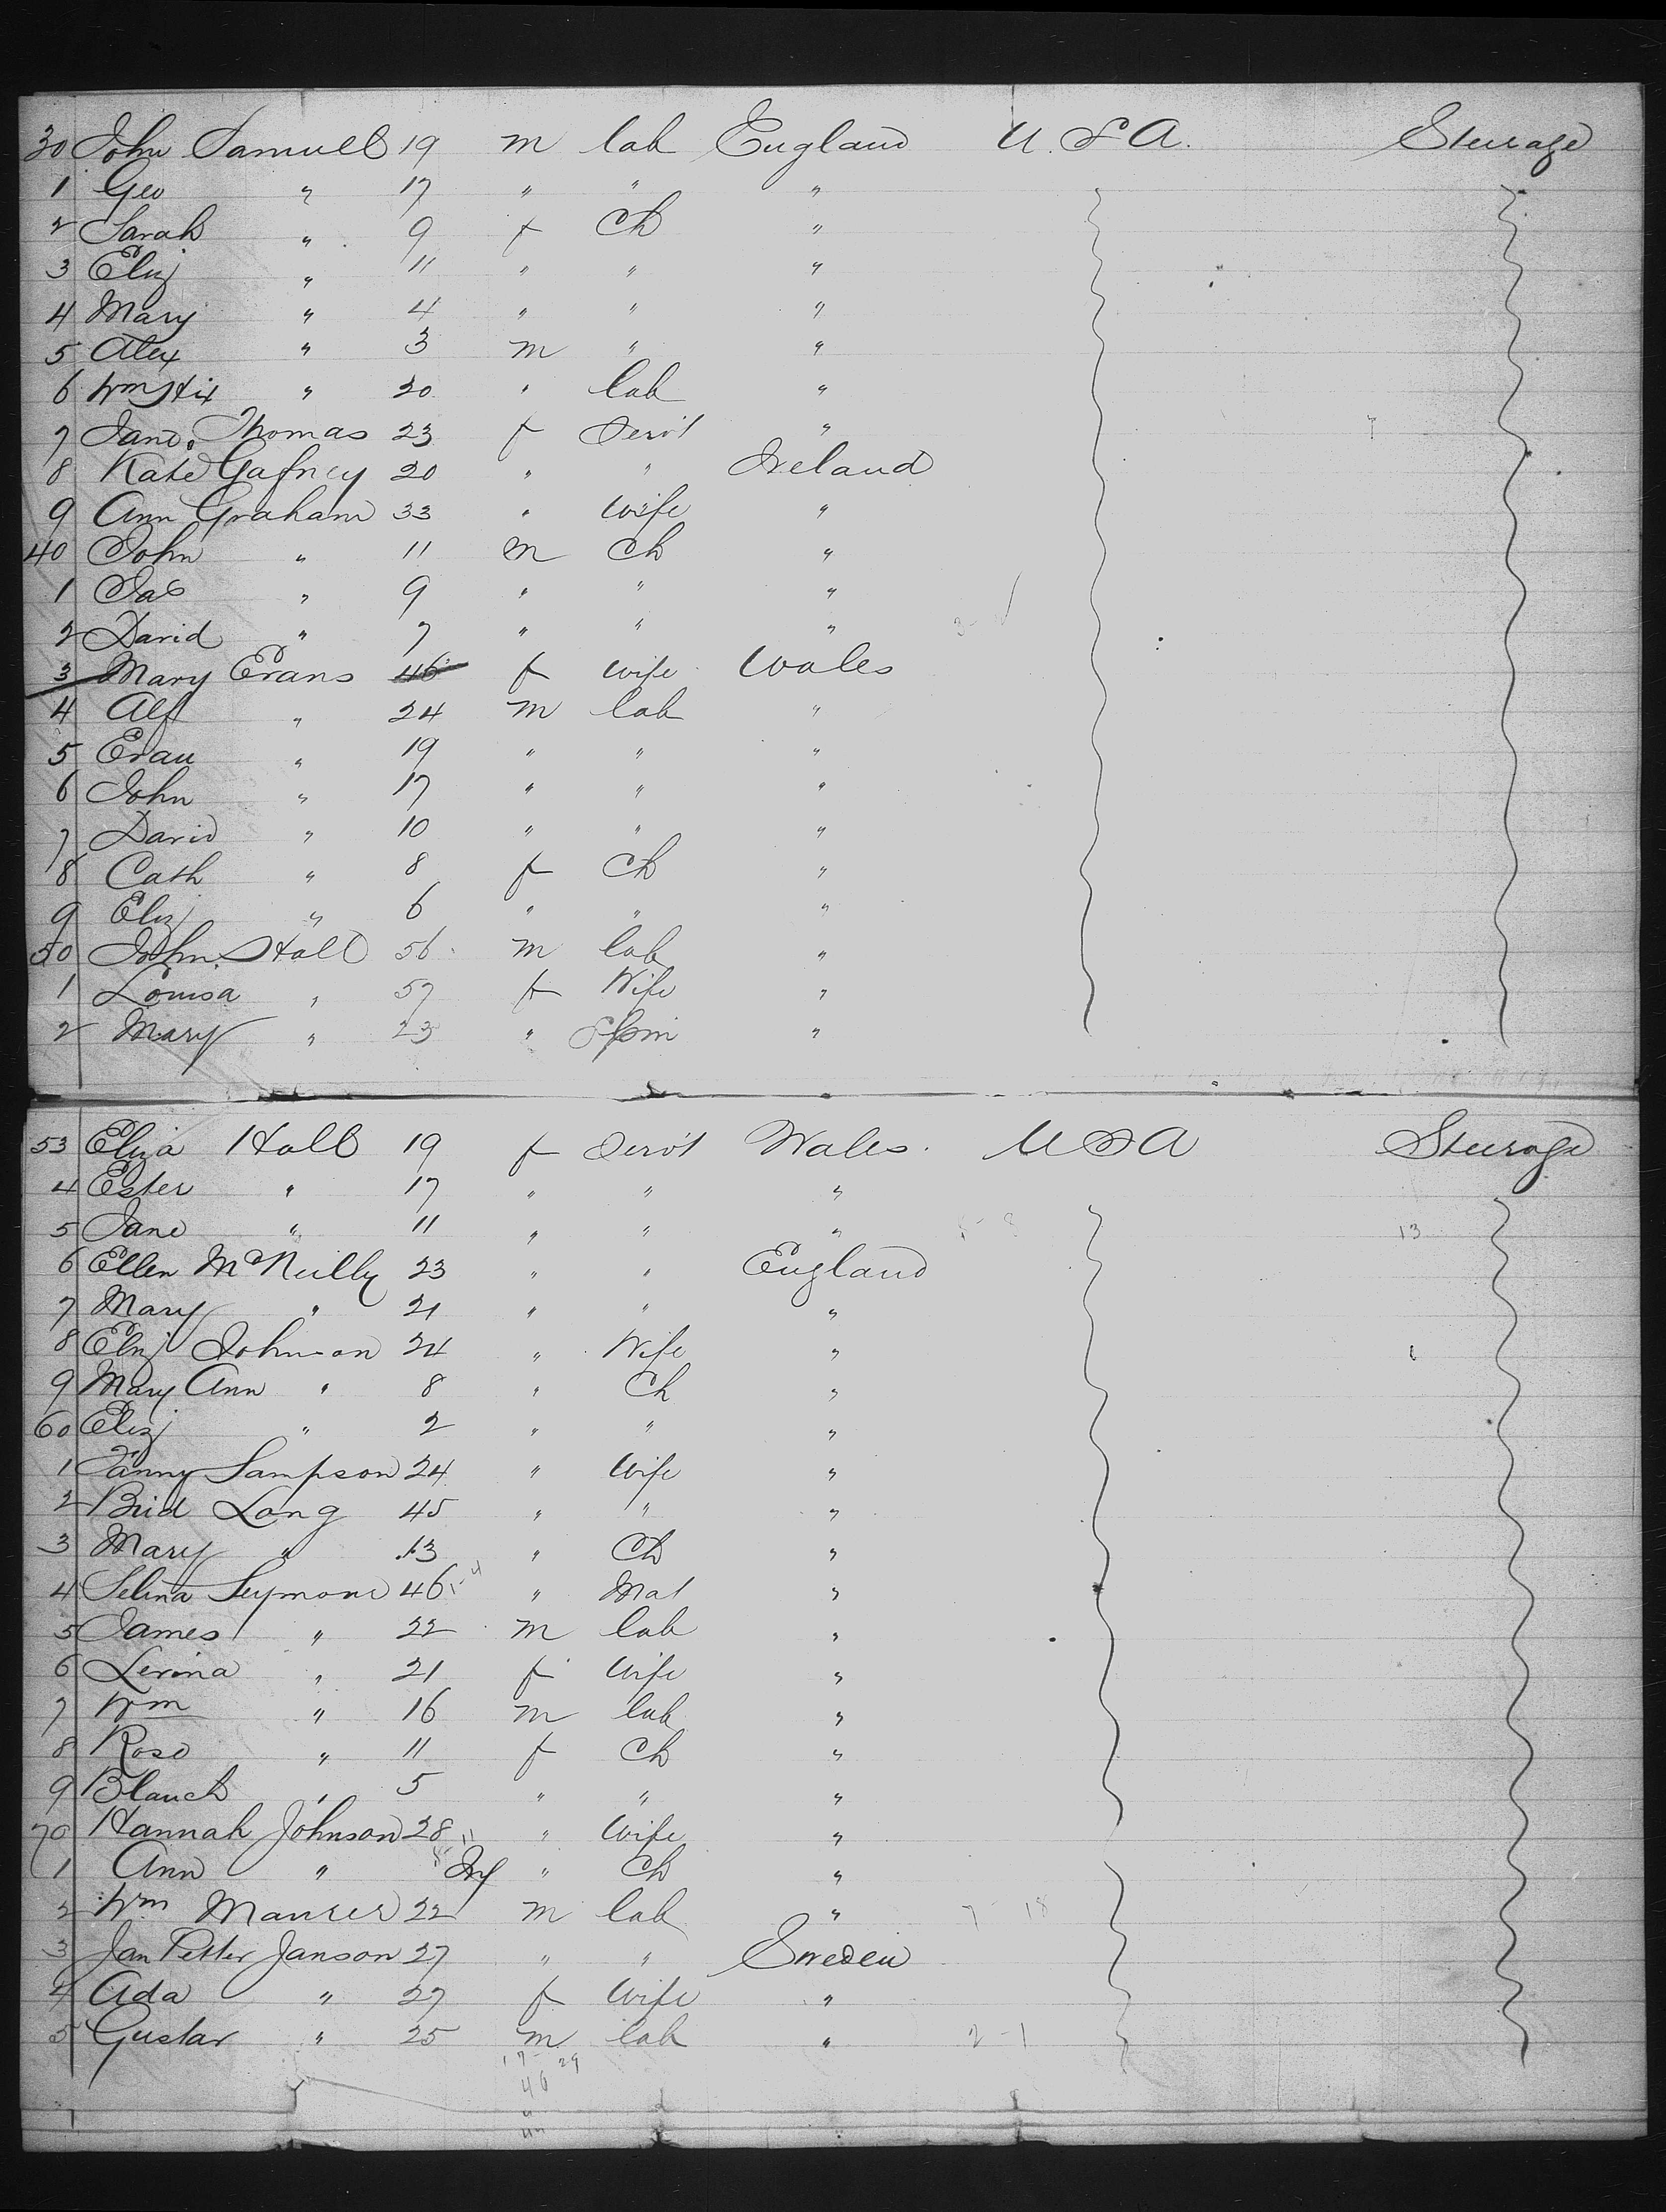 30 John Samuell 19 m lab England U.S.A. Steerage
1 Geo " 17 " " "
2 Sarah " 9 f Ch "
3 Eliz " 11 " " "
4 Mary " 4 " " "
5 Alex " 3 m " "
6 Wm Hix " 20 " lab "
7 Jane Thomas 23 f Servt "
8 Kate Gafney 20 " " Ireland
9 Ann Graham 33 " Wife "
40 John " 11 m Ch "
1 Jas " 9 " " "
2 David " 7 " " "
3 Mary Evans 46 f Wife Wales
4 Alf " 24 m lab "
5 Evan " 19 " " "
6 John " 17 " " "
7 David " 10 " " "
8 Cath " 8 f Ch "
9 Eliz " 6 " " "
50 John Hall 56 m lab "
1 Louisa " 57 f Wife "
2 Mary " 23 " Spin "
53 Eliza Hall 19 f Servt Wales. U S A Steerage
4 Ester " 17 " " "
5 Jane " 11 " " " 13
6 Ellen McNeilly 23 " " England
7 Mary " 21 " " "
8 Eliz Johnson 24 " Wife "
9 Mary Ann " 8 " Ch "
60 Eliz " 2 " " "
1 Fanny Sampson 24 " Wife "
2 Brid Long 45 " " "
3 Mary " 13 " Ch "
4 Selina Seymour 46 " Mat "
5 James " 22 m lab "
6 Levina " 21 f Wife "
7 Wm " 16 m lab "
8 Rose " 11 f Ch "
9 Blanch " 5 " " "
70 Hannah Johnson 28 " Wife "
1 Ann " Inf " Ch "
2 Wm Maurer 22 m lab " 7 - 18
3 Jan Petter Janson 27 " " Sweden
4 Ada " 27 f Wife "
5 Gustav " 25 m lab " 2 - 1
17 29
46